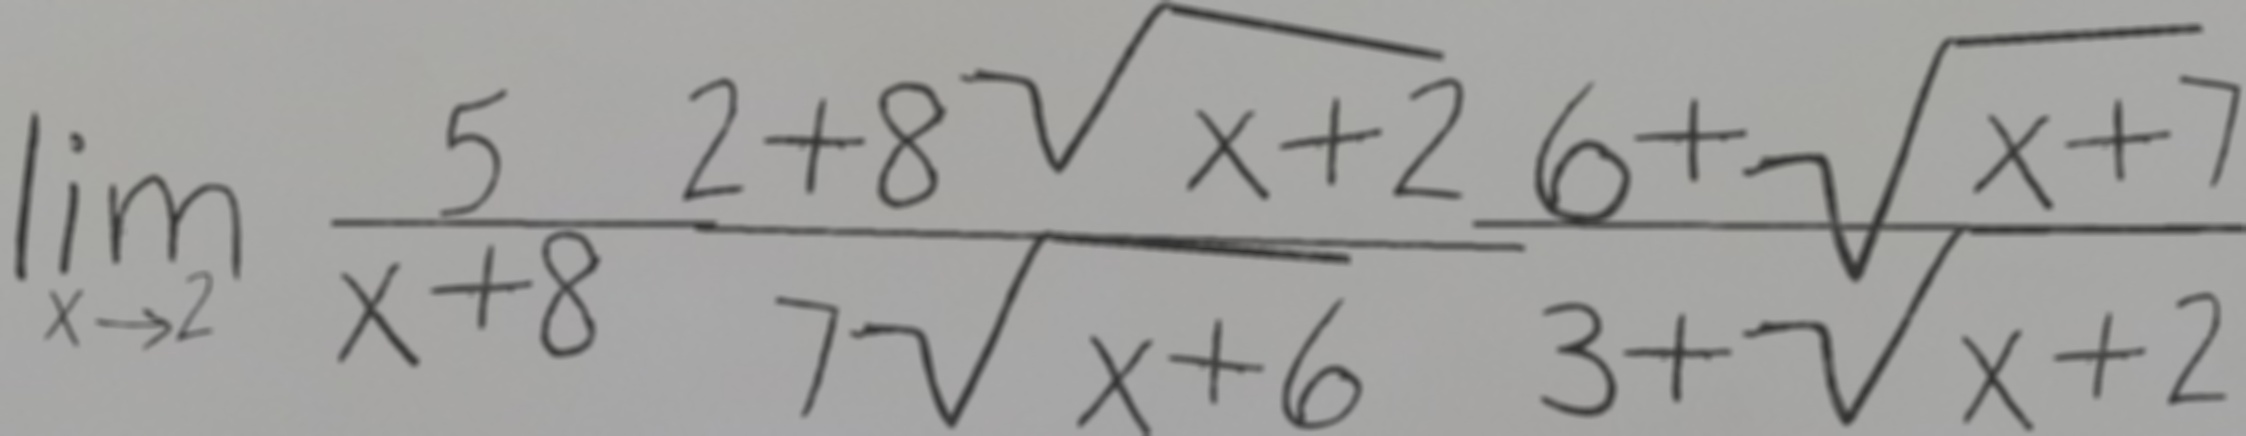 \lim_{x \to 2} \frac{5}{x+8} \frac{2+8\sqrt{x+2}}{7\sqrt{x+6}} \frac{6+\sqrt{x+7}}{3+\sqrt{x+2}}